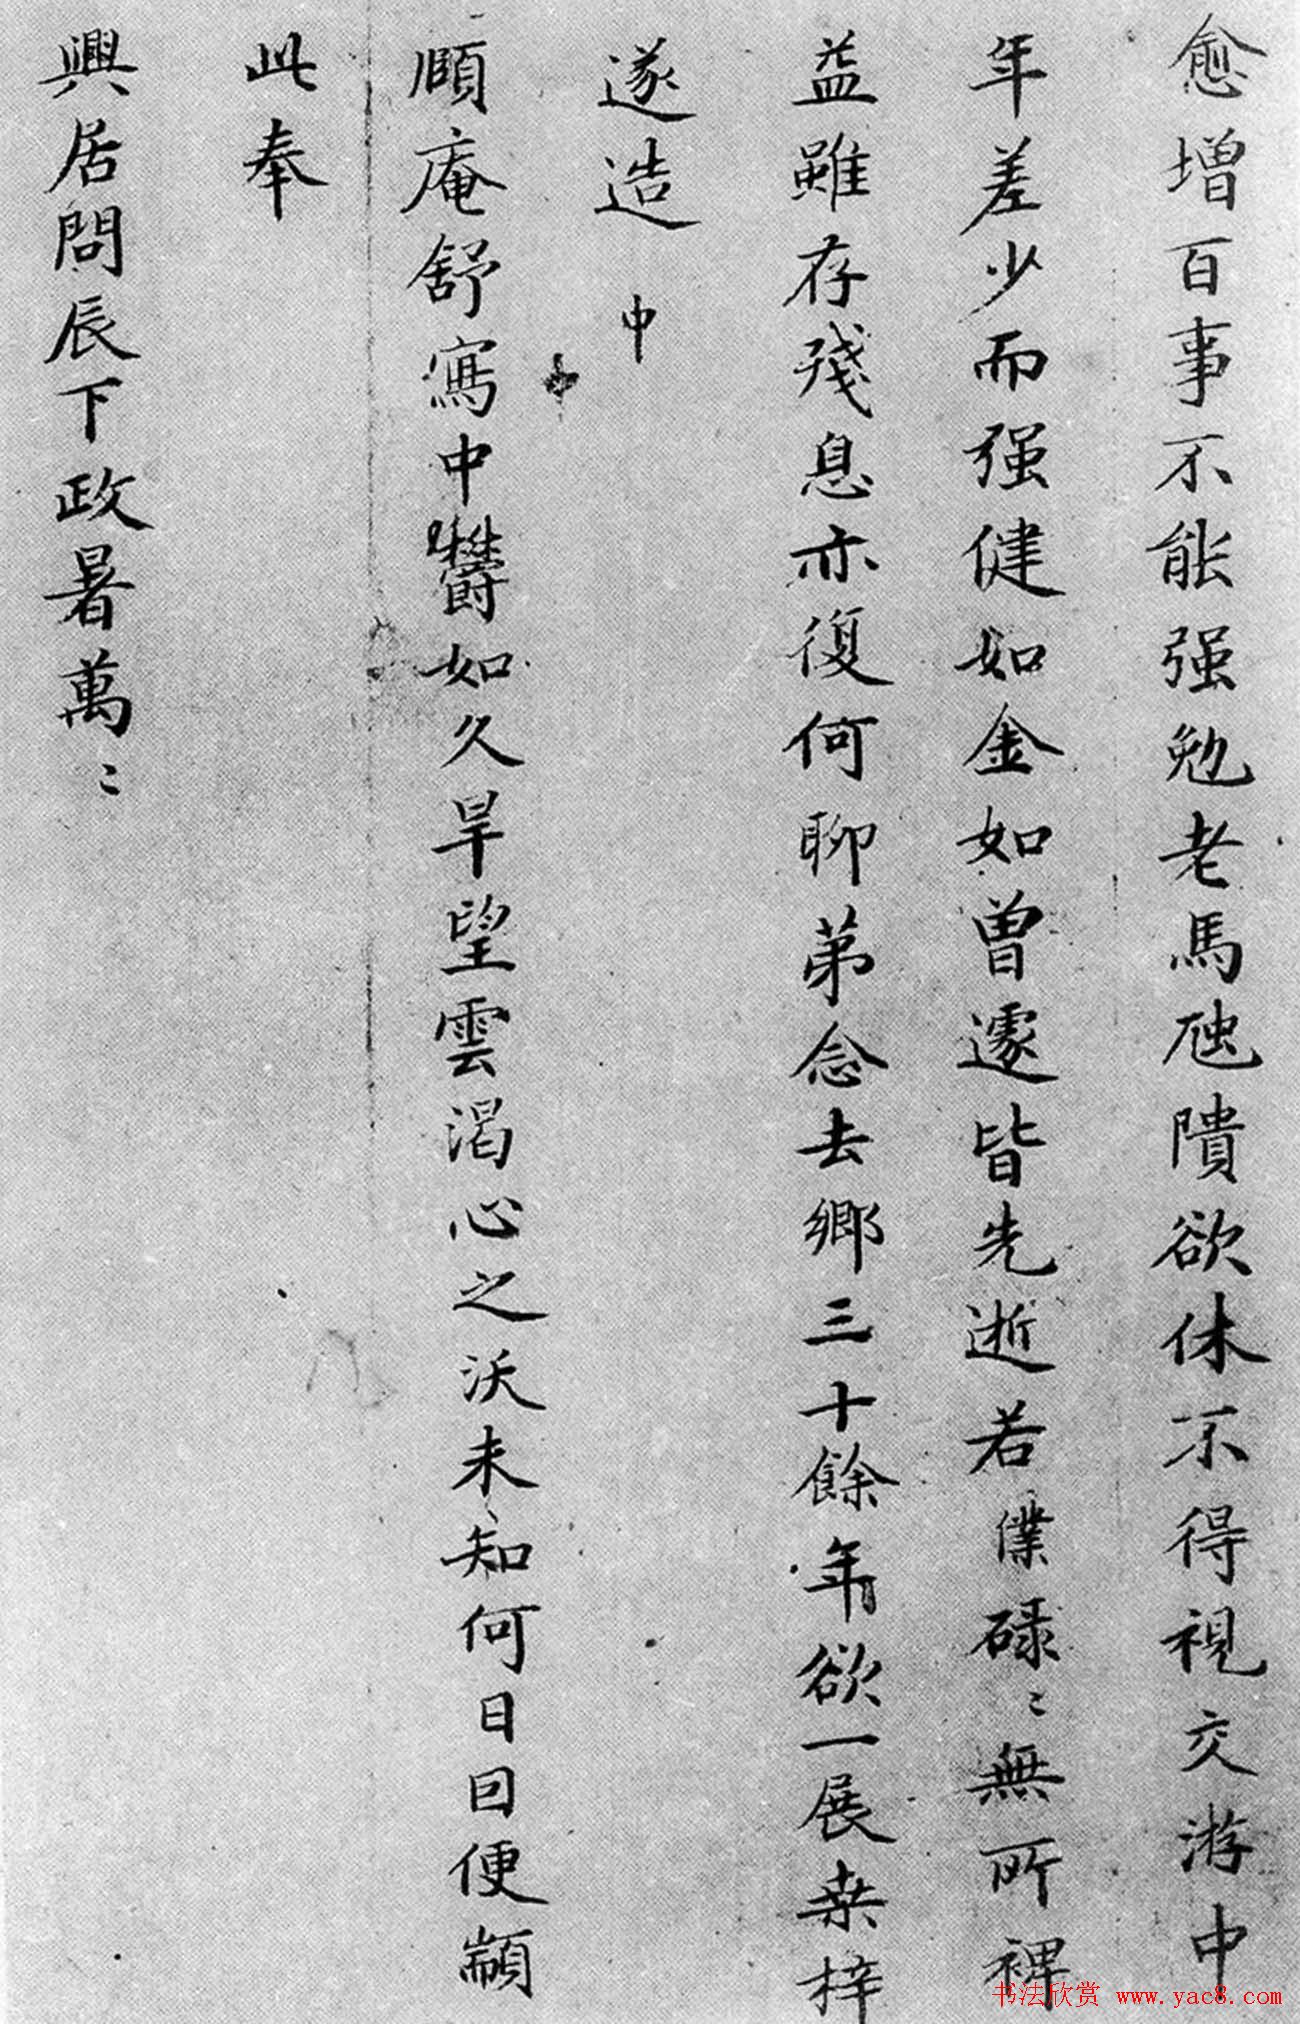 愈增百事不能强勉老馬虺隤欲休不得視交游中
年差少而强健如金如曾遽皆先逝若僕碌〻無所裨
益雖存殘息亦復何聊弟念去鄉三十餘年欲一展桒梓
遂造 中
頤庵舒寫中欝如久旱望雲渴心之沃未知何日因便顓
此奉
興居問辰下政暑萬〻
书法欣赏 www.yac8.com